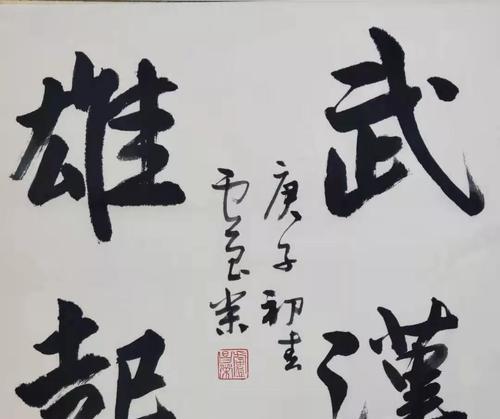 武漢
雄起
庚子初春